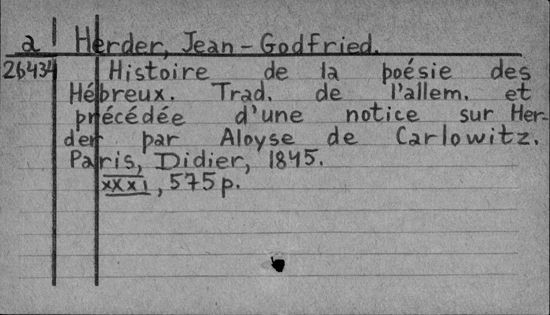 a Herder, Jean-Godfried.
26434 Histoire de la poésie des
Hébreux. Trad. de l'allem. et
précédée d'une notice sur Her-
der par Aloyse de Carlowitz.
Paris, Didier, 1845.
XXXI, 575 p.